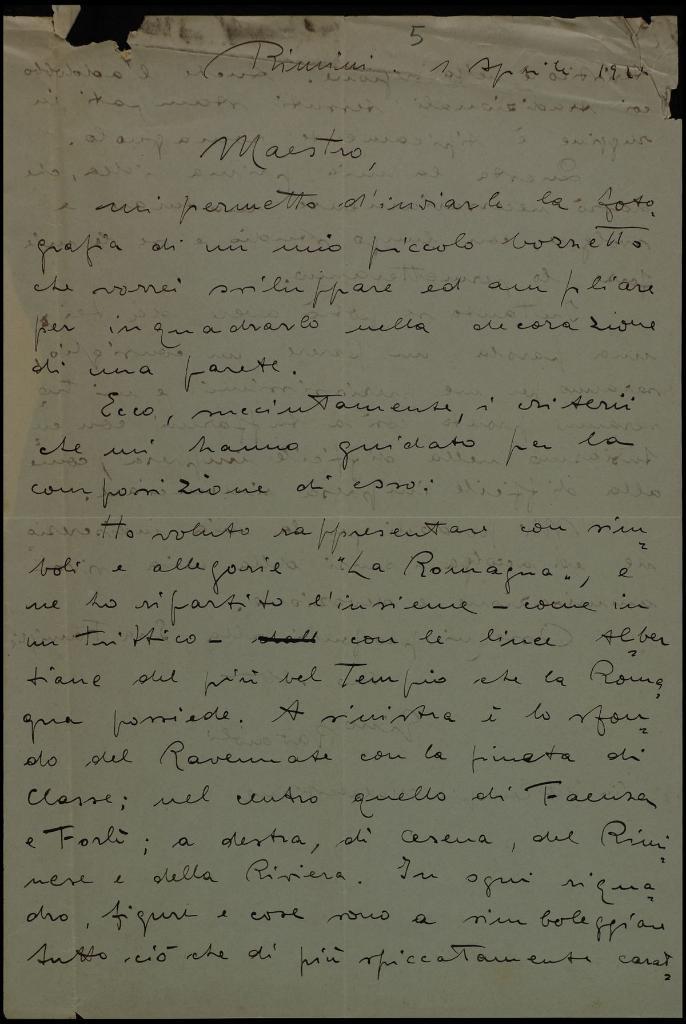 5
Rimini. 1 Aprile
Maestro,
mi permetto d'inviarle la foto-
grafia di un mio piccolo bozzetto
che vorrei sviluppare ed ampliare
per inquadrarlo nella decorazione
di una parete.
Ecco, succintamente, i criterii
che mi hanno guidato per la
composizione di esso:
Ho voluto rappresentare con sim=
boli e allegorie "La Romagna", e
ne ho ripartito l'insieme - come in
un Trittico - con le linee Alber=
tiane del più bel Tempio che la Roma=
gna possiede. A sinistra è lo sfon=
do del Ravennate con la pineta di
Classe; nel centro quello di Faenza
e Forlì; a destra, di Cesena, del Rimi=
nese e della Riviera. In ogni riqua=
dro, figure e cose sono a simboleggiare
tutto ciò che di più spiccatamente carat=